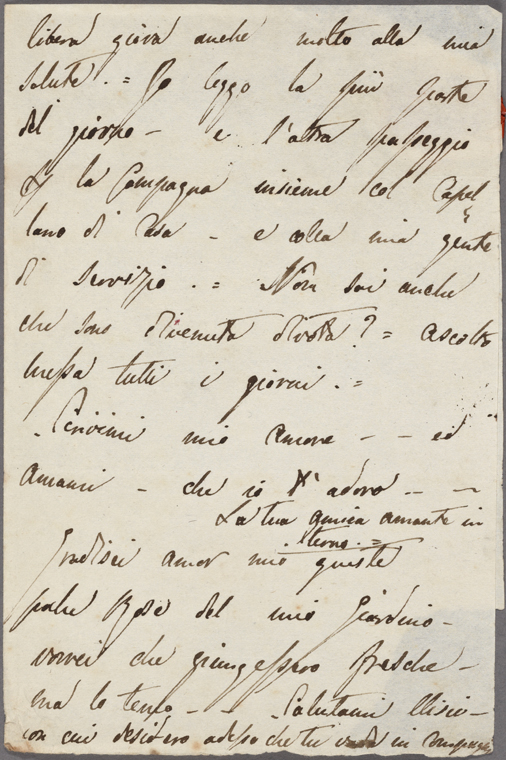 libera giova anche molto alla mia
salute. = Io leggo la più parte
del giorno - e l'altra passeggio
la Campagna insieme col Capel
lano di Casa - e colla mia gente
di servizio. = Non sai anche
che sono divenuta divota? = ascolto
messa tutti i giorni. =
Scrivimi mio amore - - ed
amami - che io t'adoro - - -
La tua amica amante in
eterno. =
Gradisci amor mio queste
poche Rose del mio Giardino -
vorrei che giungessero fresche -
ma lo temo - - Salutami Elisio -
con cui desidero adesso che tu vada in compagnia